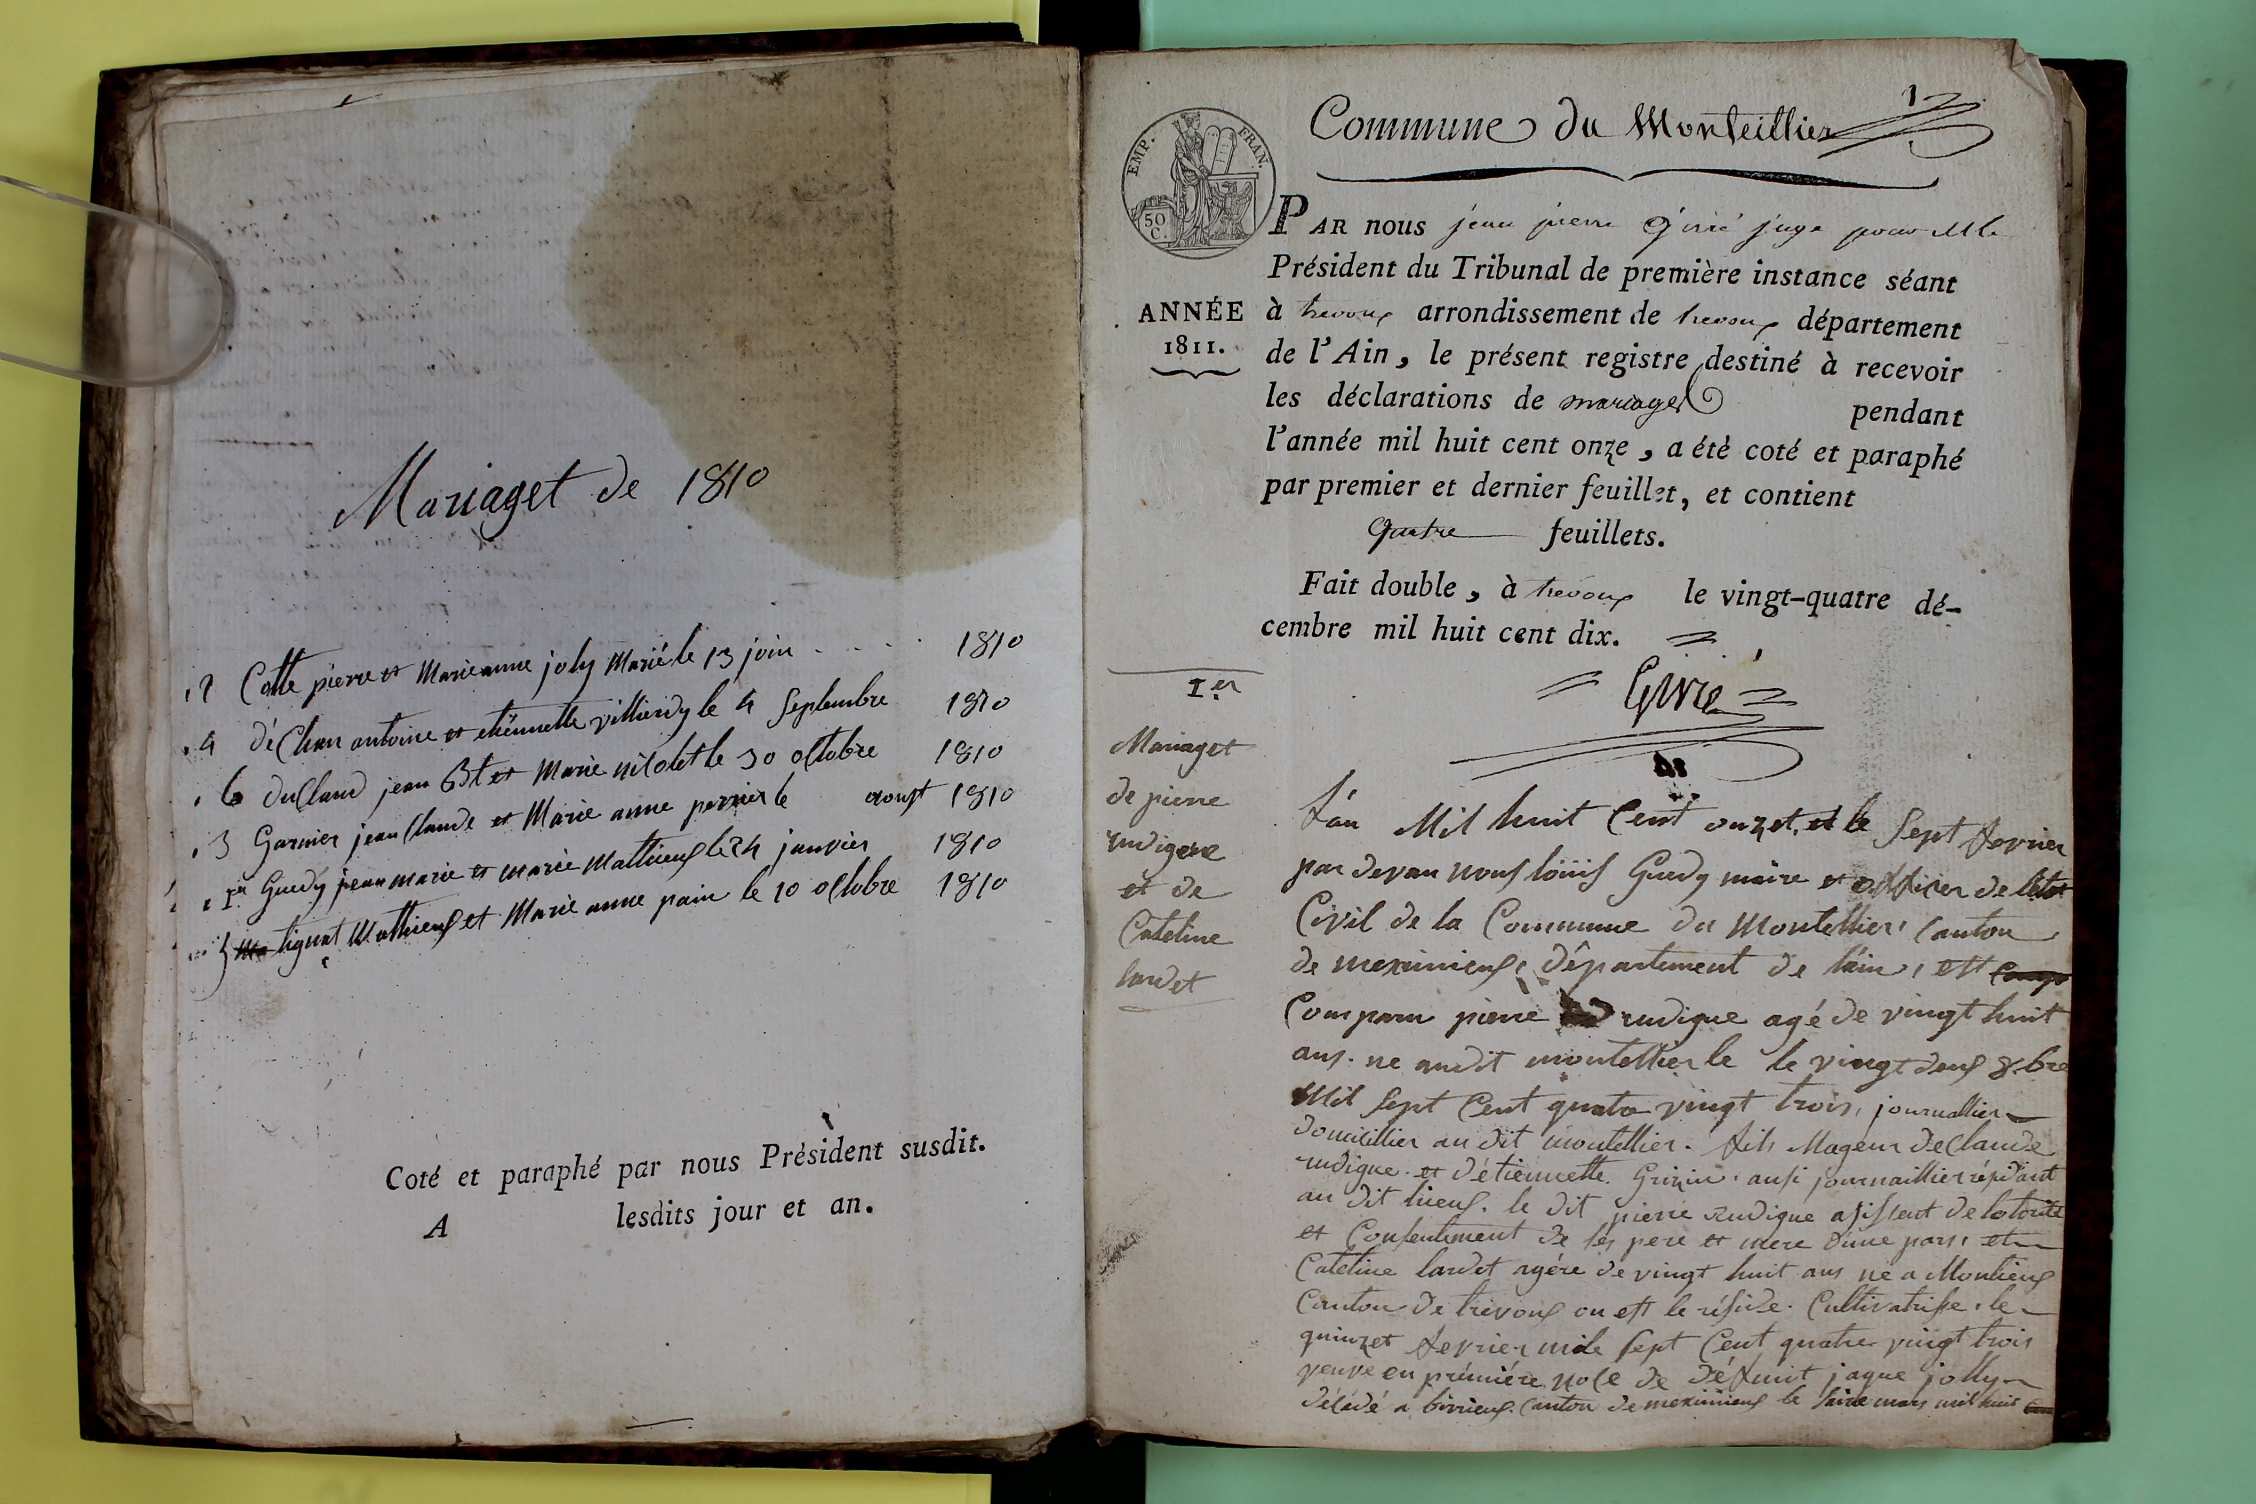 Mariaget de 1810
2 Cotte pierre et Marieanne joly Marié le 13 juin 1810
4 déChan antoine et etiënnette villierdy le 4 Septembre 1810
6 duCland jean Bte et Marie nicolet le 30 octobre 1810
3 Garnier jean Claude et Marie anne perrier le aoust 1810
1er Guedy jean marie et marie Mathieux le 24 janvier 1810
5 tignat Mathieux et Marie anne pain le 10 octobre 1810
Coté et paraphé par nous Président susdit.
A lesdits jour et an.
1
Commune du Monteillier
EMP. FRAN.
50 C.
PAR nous jean pierre Girié juge pour Mr le
Président du Tribunal de première instance séant
ANNÉE
1811.
à trevoux arrondissement de trevoux département
de l'Ain, le présent registre destiné à recevoir
les déclarations de mariages pendant
l'année mil huit cent onze, a été coté et paraphé
par premier et dernier feuillet, et contient
quatre feuillets.
Fait double, à trevoux le vingt-quatre dé-
cembre mil huit cent dix.
Girié
1er
Mariaget
de pierre
rudigoz
et de
Cateline
lardet
L'án Mil huit Cent onzet, et le Sept fevrier
par devan nous loüis Guedy maire et officier de l'etat
Civil de la Commune du Montellier, Canton
de meximieux, département de l'ain, est
Comparu pierre rudigue agé de vingt huit
ans. ne audit montellier le le vingt deux 8.bre
Mil Sept Cent quatre vingt trois, journallier
domicillier au dit montellier. fils Mageur de Claude
rudigue et d'étiennette Grizin, ausi journaillier résidant
au dit lieux. le dit pierre rudigue asistent de lotorité
et Consentement de ses pere et mere d'une pars, et
Cateline lardet agére de vingt huit ans ne a Montieux
Canton de trevoux ou est le réside. Cultivatrisse, le
quinzet fevrier mile Sept Cent quatre vingt trois
veuve en première noce de défunt jaque jolly
décédé a birrieux. Canton de meximieux le mars mil huit